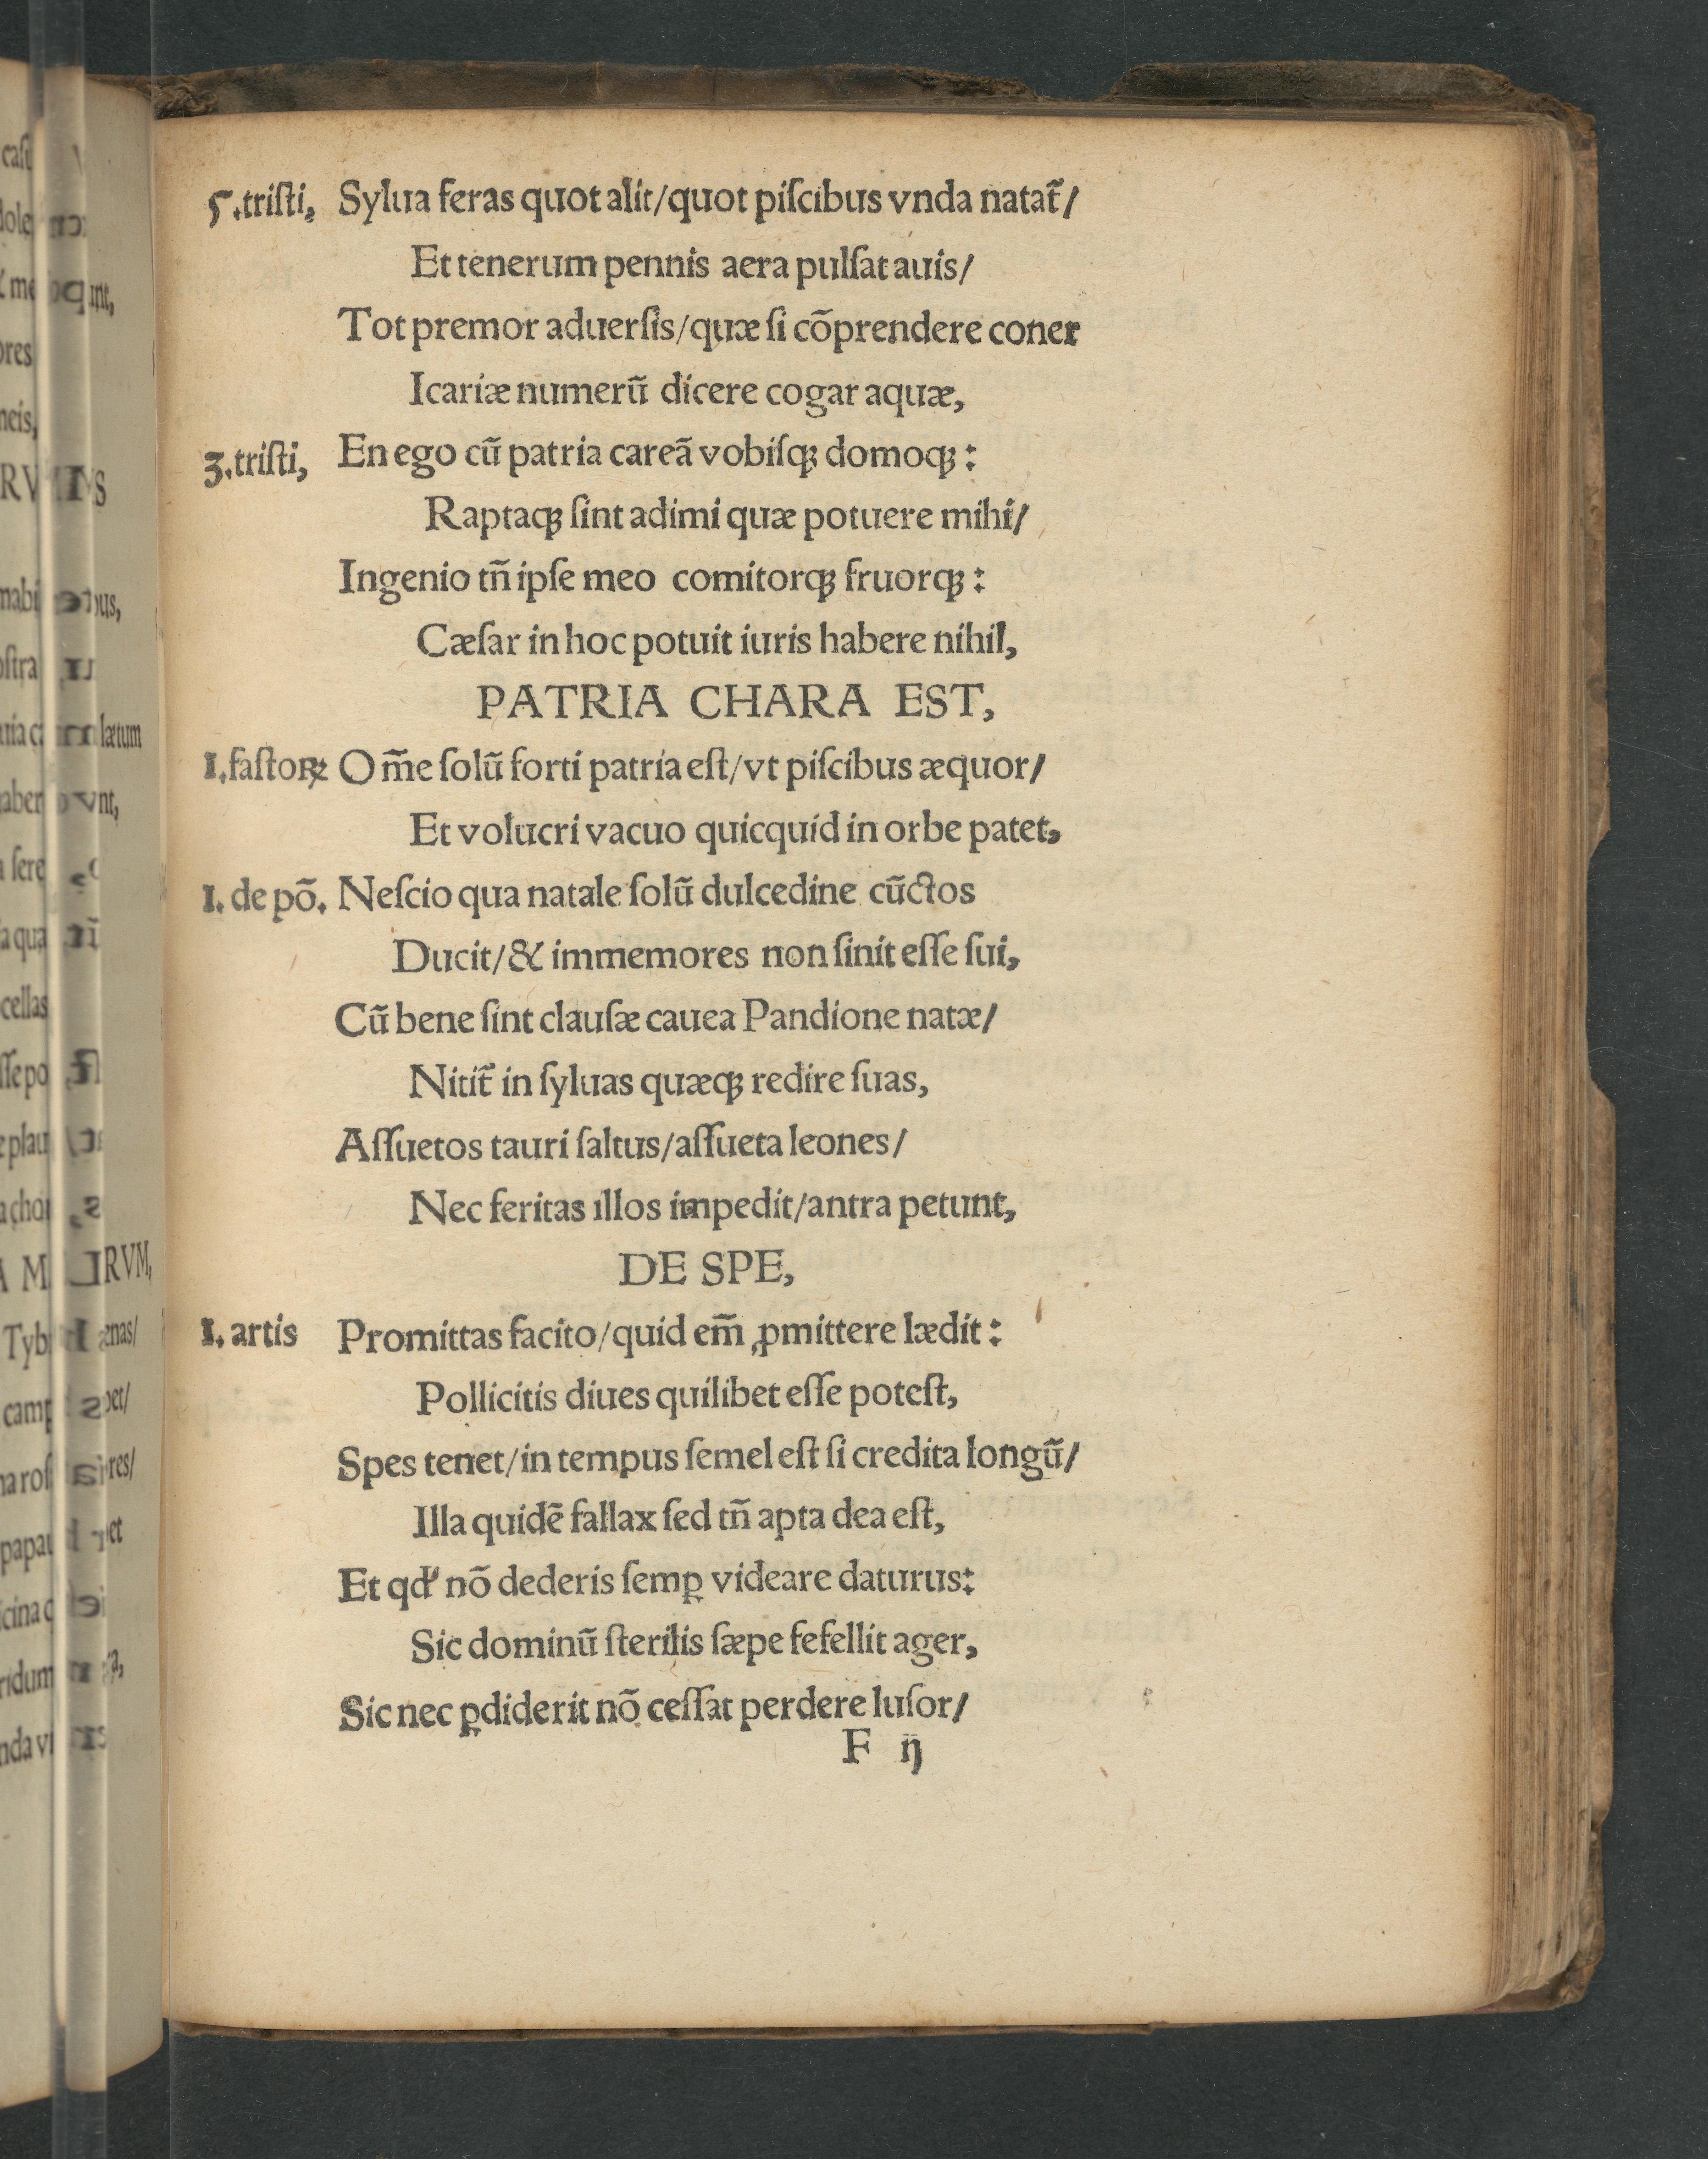 5.triſti, Sylua feras quot alit/quot piſcibus vnda natat᷑/
Et tenerum pennis aera pulſat auis/
Tot premor aduerſis/quæ ſi cõprendere coner
Icariæ numerũ dicere cogar aquæ,
3.triſti, En ego cũ patria careã vobiſqꝫ domoqꝫ:
Raptaqꝫ ſint adimi quæ potuere mihi/
Ingenio tñ ipſe meo comitorqꝫ fruorqꝫ:
Cæſar in hoc potuit iuris habere nihil,
PATRIA CHARA EST,
I.faſtoꝝ Om̃e ſolũ forti patria eſt/vt piſcibus æquor/
Et volucri vacuo quicquid in orbe patet,
I. de põ. Neſcio qua natale ſolũ dulcedine cũctos
Ducit/& immemores non ſinit eſſe ſui,
Cũ bene ſint clauſæ cauea Pandione natæ/
Nitit᷑ in ſyluas quæqꝫ redire ſuas,
Aſſuetos tauri ſaltus/aſſueta leones/
Nec feritas illos impedit/antra petunt,
DE SPE,
I. artis Promittas facito/quid em̃ ꝓmittere lædit:
Pollicitis diues quilibet eſſe poteſt,
Spes tenet/in tempus ſemel eſt ſi credita longũ/
Illa quidẽ fallax ſed tñ apta dea eſt,
Et qd' nõ dederis ſemꝑ videare daturus:
Sic dominũ ſterilis ſæpe fefellit ager,
Sic nec ꝑdiderit nõ ceſſat perdere luſor/
F ij